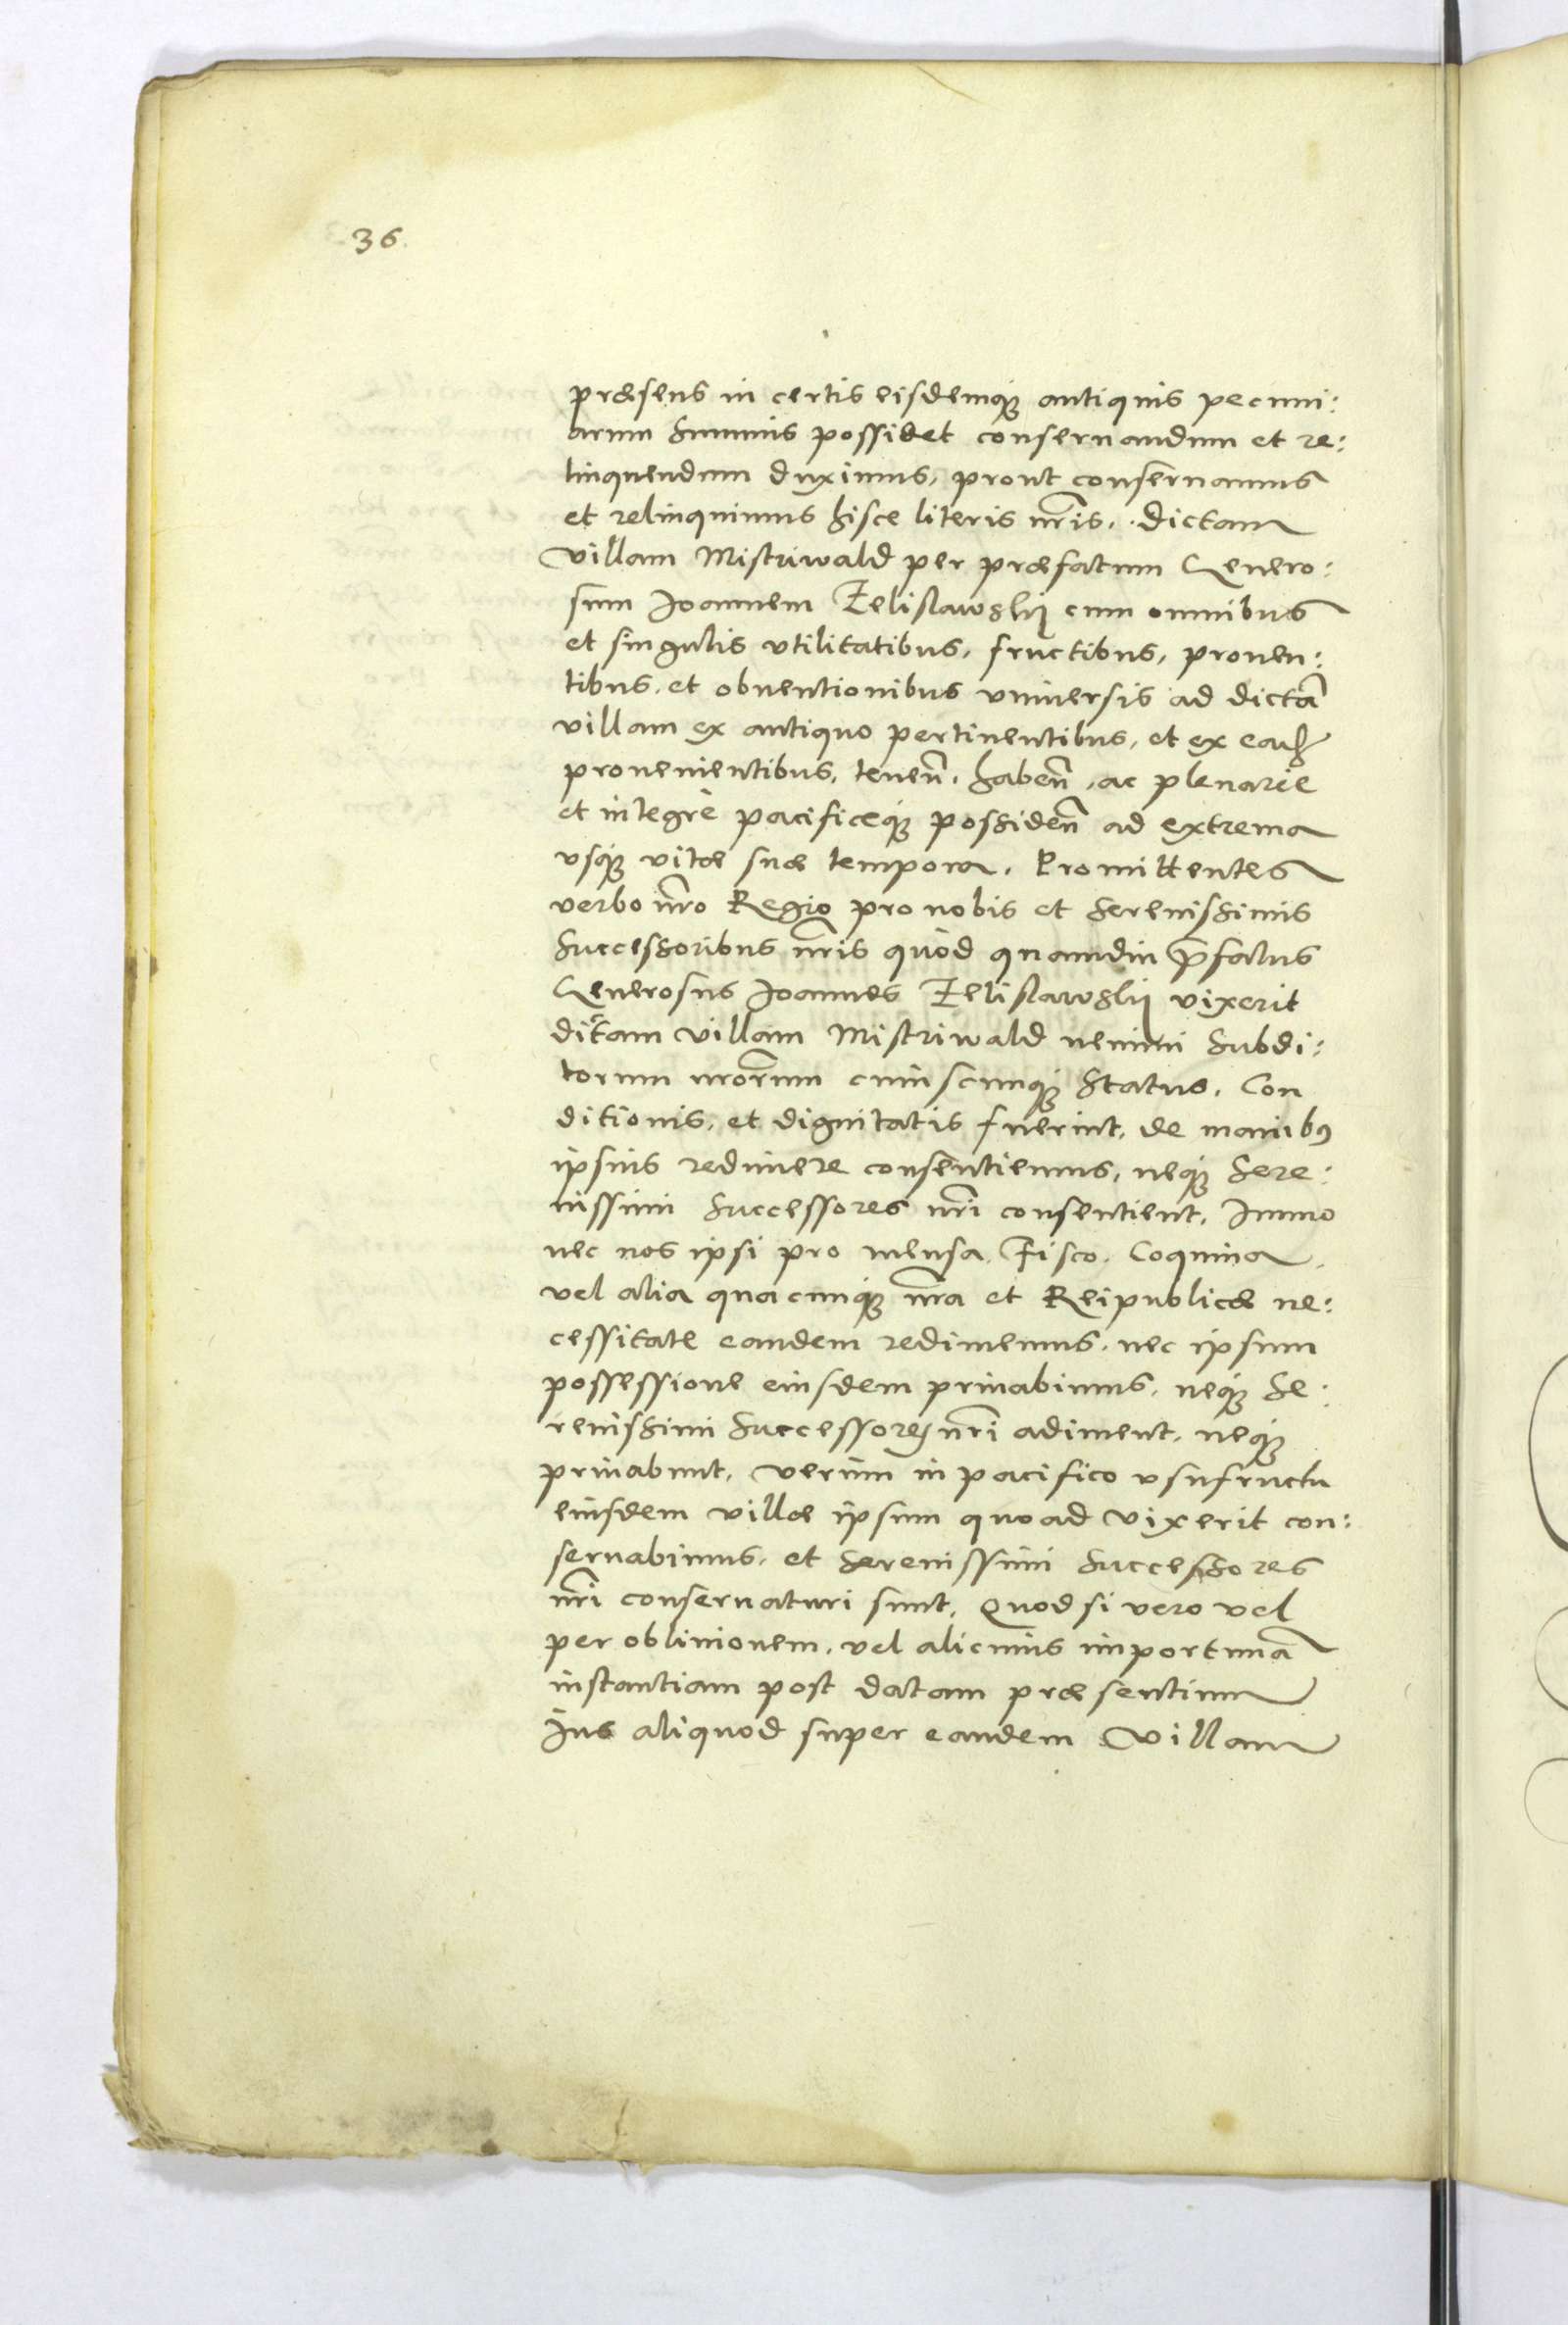 36
præsens in certis eisdemq́ꝫ antiquis pecuni:
arum Summis possidet conseruandum et re:
linquendum duximus, prout conseruamus
et relinquimus hisce literis nr̃is. Dictam
Villam Mistriwald per præfatum Genero:
sum Joannem Zelislawskij cum omnibus
et singulis vtilitatibus, fructibus, prouen:
tibus, et obuentionibus vniuersis ad dictã
villam ex antiquo pertinentibus, et ex eadẽ
prouenientibus, tenen̄, haben̄, ac plenarie
et integrè pacificeq́ꝫ possiden̄ ad extrema
vsq́ꝫ vitæ suæ tempora. Promittentes
verbo nr̃o Regio pro nobis et Serenissimis
Successoribus nr̃is quòd quamdiu p̄fatus
Generosus Joannes Zelislawskij vixerit
dictam villam Mistriwald nemini Subdi:
torum nr̃orum cuiuscunq́ꝫ Status, Con
ditionis, et dignitatis fuerint, de manibꝰ
ipsius redimere consentiemus, neq́ꝫ Sere:
nissimi Successores nr̃i consentient, Immo
nec nos ipsi pro mensa, Fisco, Coquina,
vel alia quacunq́ꝫ nr̃a et Reipublicæ ne:
cessitate eandem redimemus, nec ipsum
possessione eiusdem priuabimus, neq́ꝫ Se:
renissimi Successores nr̃i adiment, neq́ꝫ
priuabunt, verùm in pacifico vsufructu
eiusdem villæ ipsum quoad vixerit con:
seruabimus, et Serenissimi Successores
nr̃i conseruaturi sunt, Quod si vero vel
per obliuionem, vel alicuius importunã
instantiam post datam præsentium
Jus aliquod super eandem Villam